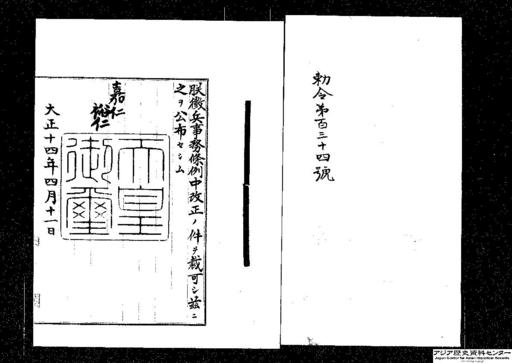 勅令第百三十四號
朕徴兵事務條例中改正ノ件ヲ裁可シ茲ニ
之ヲ公布セシム
嘉仁
裕仁
天皇
御璽
大正十四年四月十一日
アジア歴史資料センター
Japan Center for Asian Historical Records